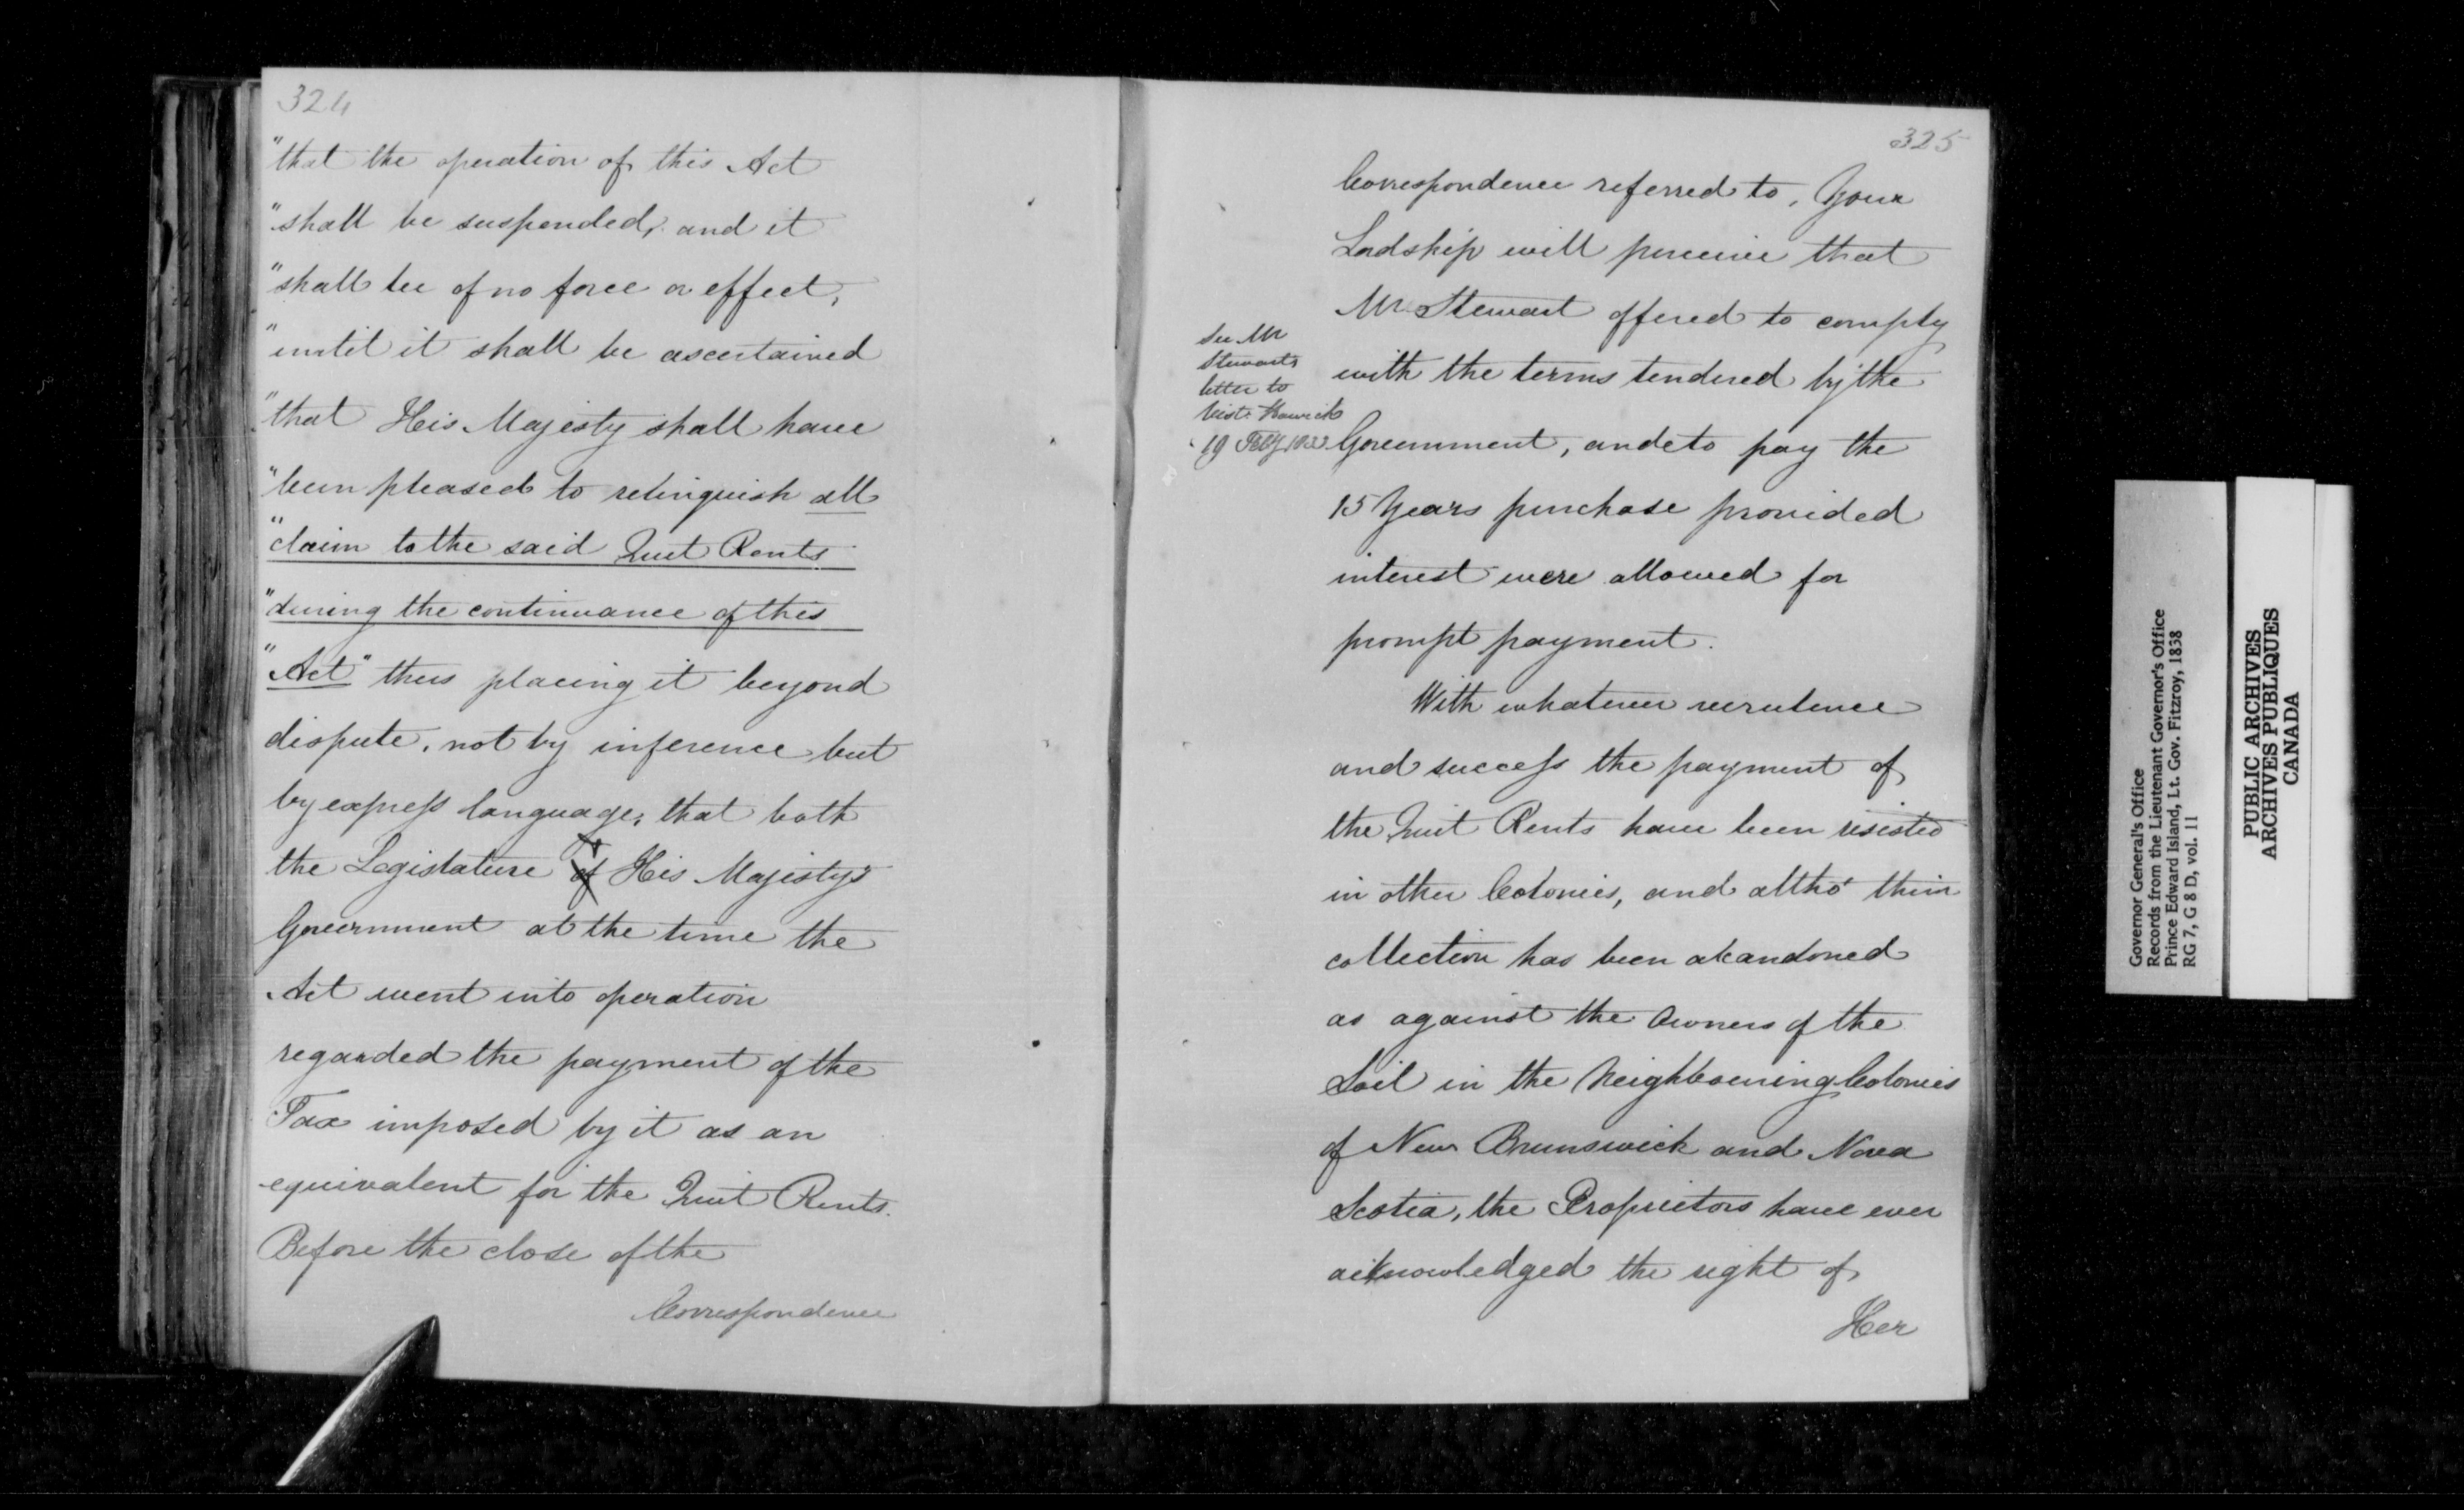 324
"that the operation of this Act
"shall be suspended, and it
"shall be of no force or effect,
"until it shall be ascertained
"that His Majesty shall have
"been pleased to relinquish all
"claim to the said Quit Rents
"during the continuance of this
"Act" thus placing it beyond
dispute, not by inference but
by express language, that both
the Legislature & His Majesty's
Government at the time the
Act went into operation
regarded the payment of the
Tax imposed by it as an
equivalent for the Quit Rents.
Before the close of the
Correspondence
325
Correspondence referred to, Your
Lordship will perceive that
Mr Stewart offered to comply
with the terms tendered by the
Government, and to pay the
15 Years purchase provided
interest were allowed for
prompt payment.
See Mr
Stewarts
letter to
Vist. Howick
19 Feby
With whatever virulence
and success the payment of
the Quit Rents have been resisted
in other Colonies, and altho' their
collection has been abandoned
as against the Owners of the
Soil in the Neighbouring Colonies
of New Brunswick and Nova
Scotia, the Proprietors have ever
acknowledged the right of
Her
Governor General's Office
Records from the Lieutenant Governor's Office
Prince Edward Island, Lt. Gov. Fitzroy, 1838
RG 7, G 8 D, vol. 11
PUBLIC ARCHIVES
ARCHIVES PUBLIQUES
CANADA